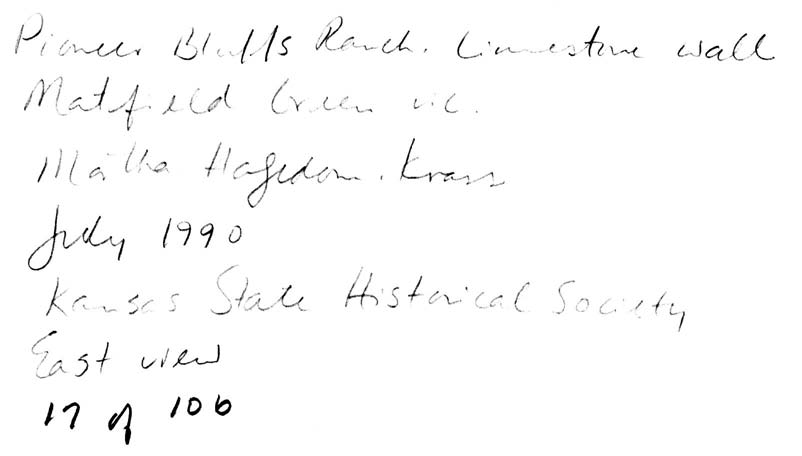 Pioneer Bluffs Ranch. Limestone wall
Matfield Green vic.
Martha Hagedorn-Krass
July 1990
Kansas State Historical Society
East view
17 of 106